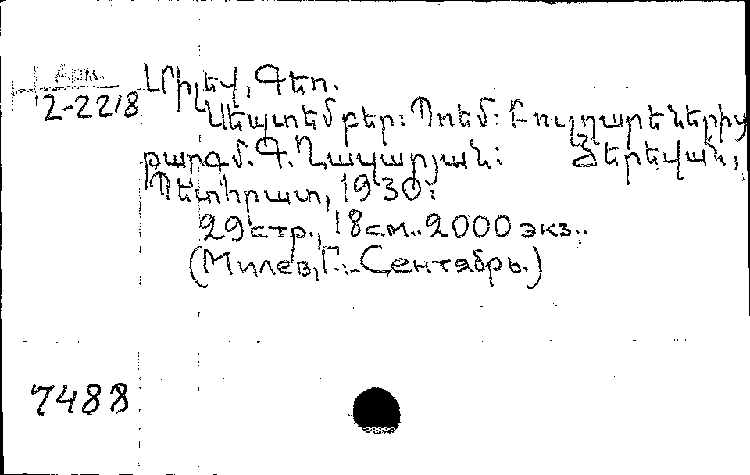 Арм.
2-2218
Միլեվ, Գեո.
Սեպտեմբեր: Պոեմ: Բուլղարերենից
թարգմ. Գ. Ղազարյան: Յերեվան,
Պետհրատ, 1930:
29 стр., 18 см.. 2000 экз..
(Милев, Г.. Сентябрь.)
7488